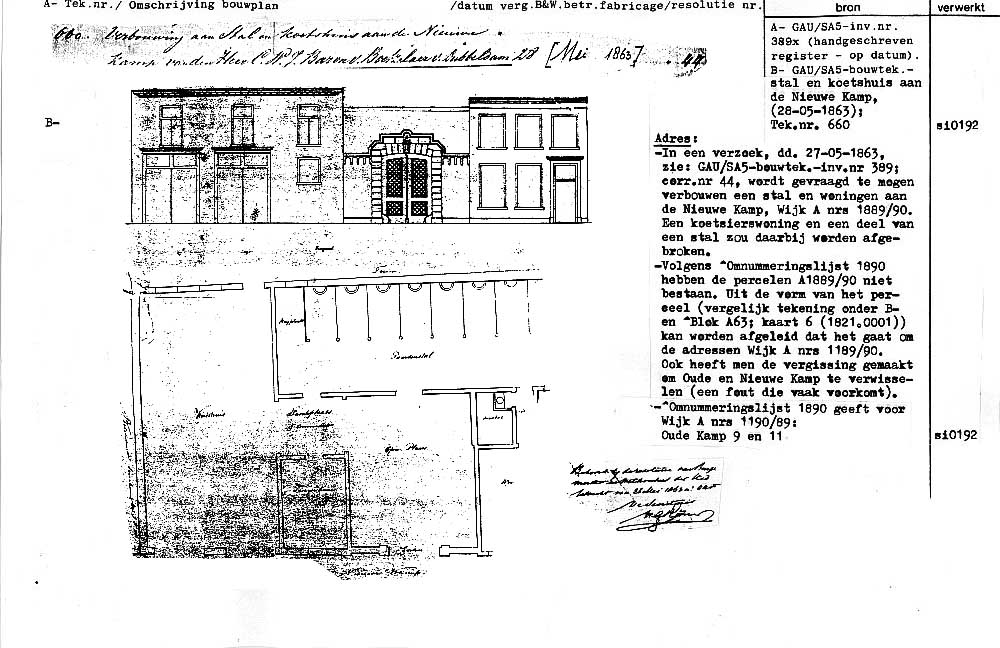 A- Tek.nr./ Omschrijving bouwplan
/datum verg.B&W.betr.fabricage/resolutie nr.
bron
verwerkt
660. Verbouwing aan Stal en koetshuis aan de Nieuwe
Kamp van den Heer C. W. J. Baron v. Boetzelaer v. Dubbeldam 28 [Mei 1863] . 44
A- GAU/SA5-inv.nr.
389x (handgeschreven
register - op datum).
B- GAU/SA5-bouwtek.-
stal en koetshuis aan
de Nieuwe Kamp,
(28-05-1863);
Tek.nr. 660
si0192
B-
Adres:
-In een verzoek, dd. 27-05-1863,
zie: GAU/SA5-bouwtek.-inv.nr 389;
corr.nr 44, wordt gevraagd te mogen
verbouwen een stal en woningen aan
de Nieuwe Kamp, Wijk A nrs 1889/90.
Een koetsierswoning en een deel van
een stal zou daarbij worden afge-
broken.
-Volgens ^Omnummeringslijst 1890
hebben de percelen A1889/90 niet
bestaan. Uit de vorm van het per-
ceel (vergelijk tekening onder B-
en ^Blok A63; kaart 6 (1821.0001))
kan worden afgeleid dat het gaat om
de adressen Wijk A nrs 1189/90.
Ook heeft men de vergissing gemaakt
om Oude en Nieuwe Kamp te verwisse-
len (een fout die vaak voorkomt).
-^Omnummeringslijst 1890 geeft voor
Wijk A nrs 1190/89:
Oude Kamp 9 en 11
si0192
Paardenstal
Koetshuis
Open Plaats